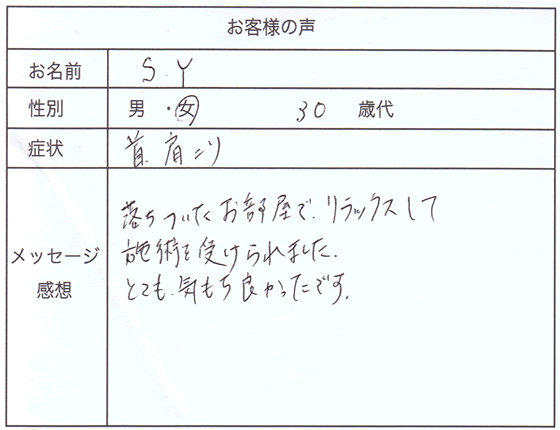 お客様の声
お名前 S.Y
性別 男・女 30 歳代
症状 首.肩こり
メッセージ
感想
落ちついたお部屋で、リラックスして
施術を受けられました.
とても.気もち良かったです.